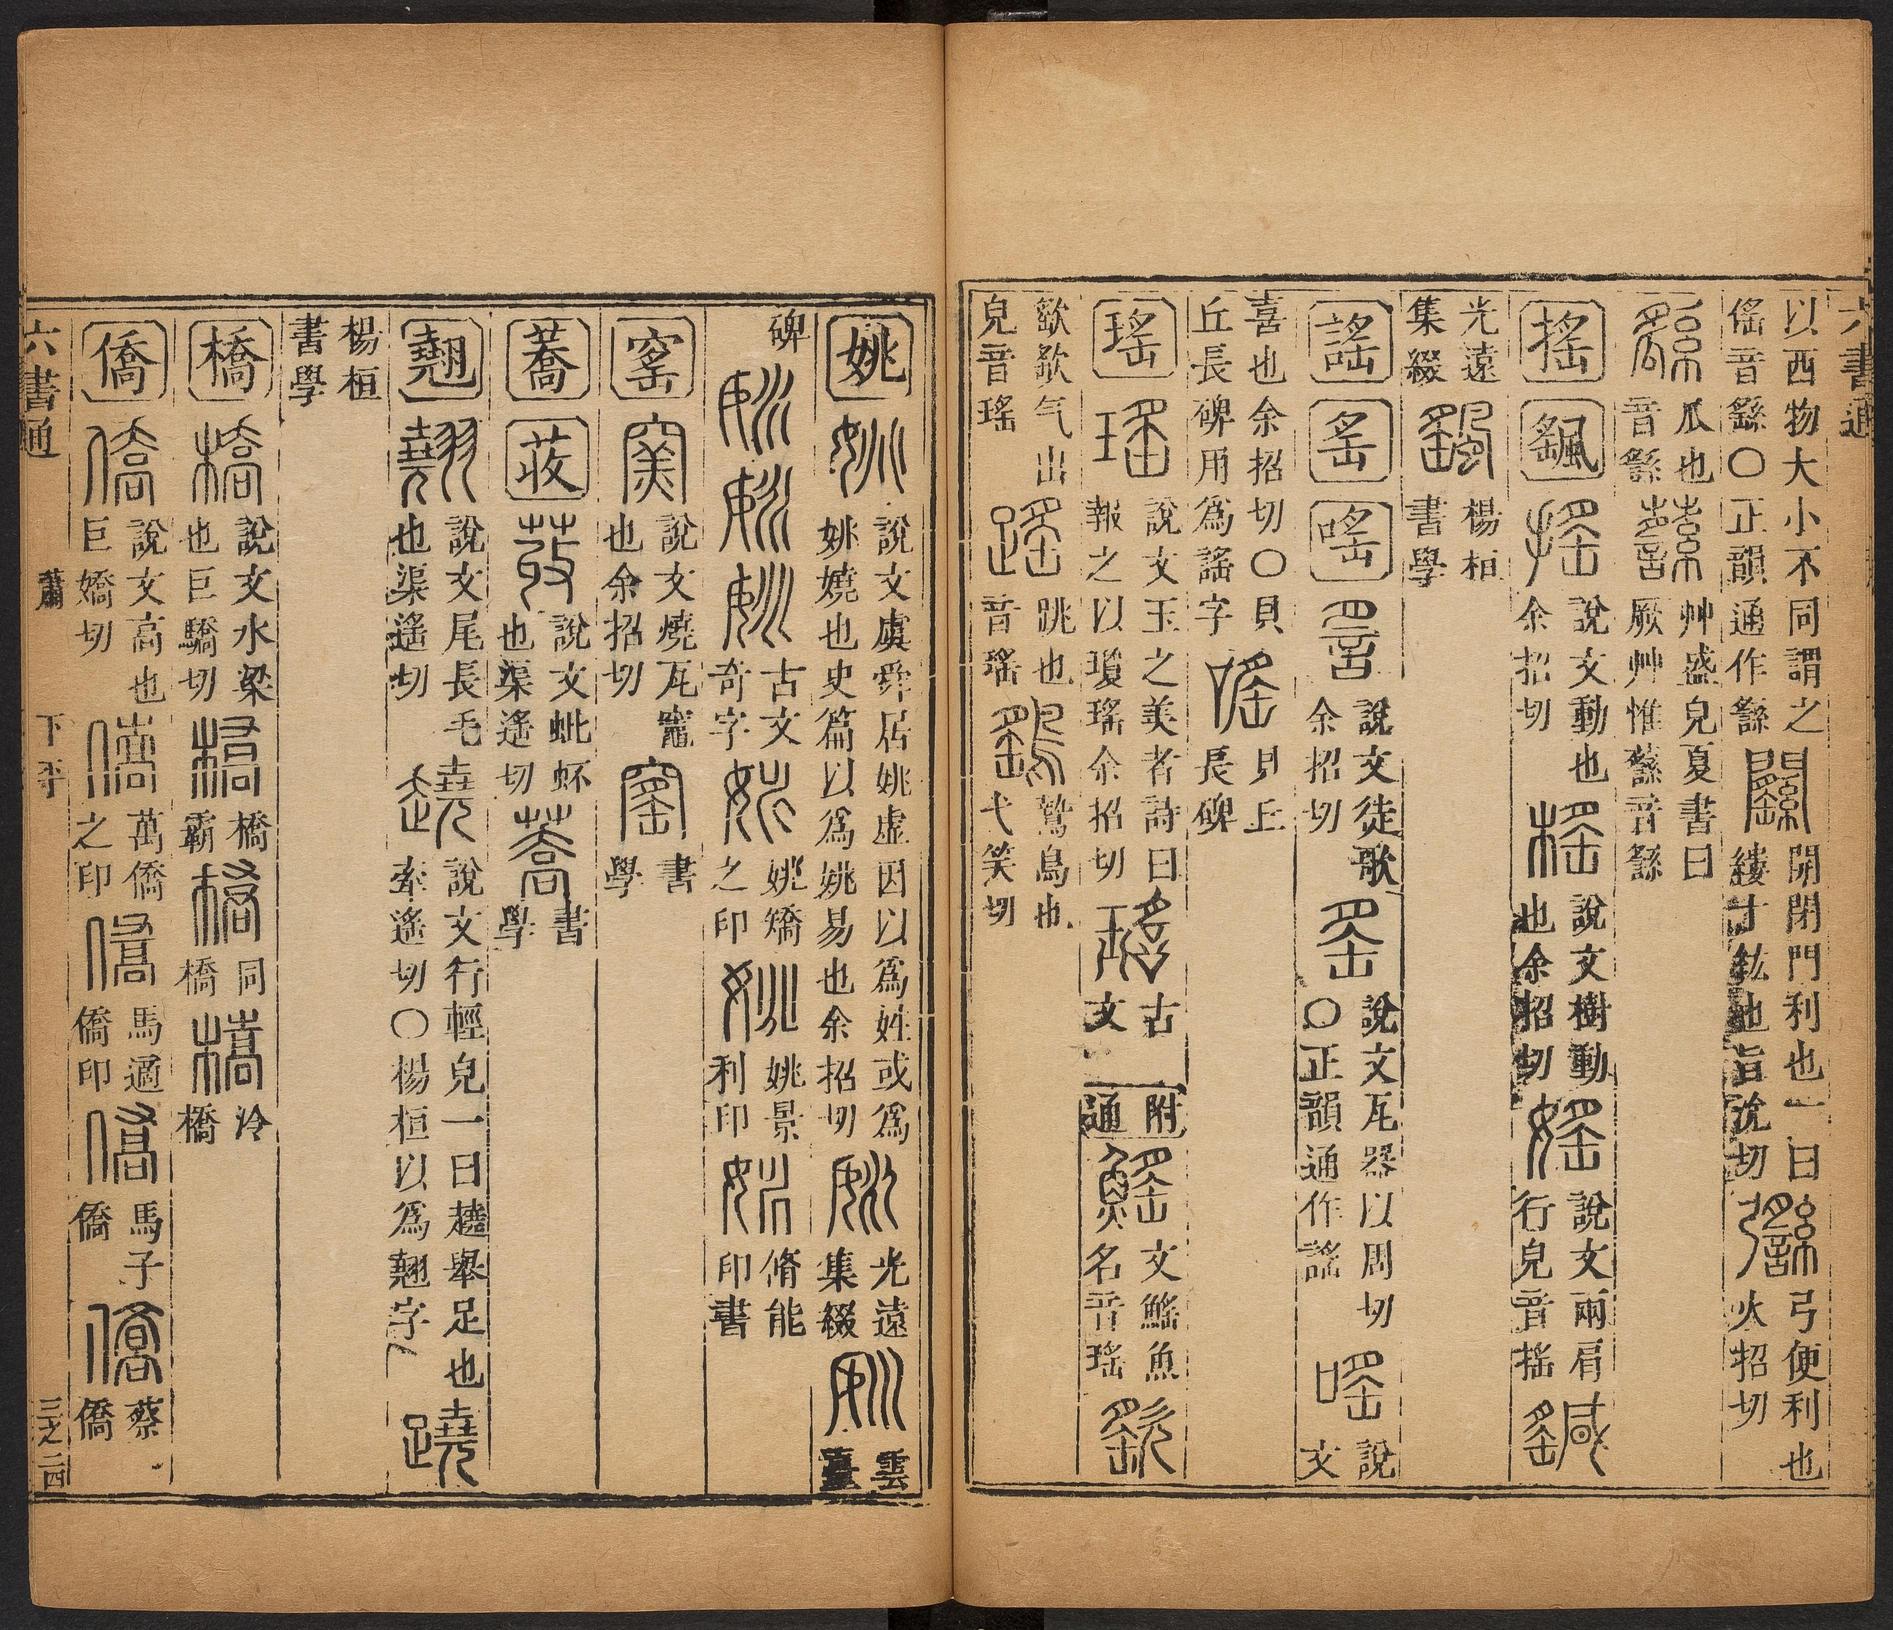 六書通
以西物大小不同謂之
傜音繇〇正韻通作繇
開閉門利也一曰
縷十紘也旨沇切
弓便利也
火招切
瓜也
音繇
艸盛皃夏書曰
厥艸惟蘨音繇
搖
䬙
說文動也
余招切
說文樹動
也余招切
說文兩肩
行皃音搖
光遠
集綴
楊桓
書學
謠
䍃
嗂
說文徒歌
余招切
說文瓦器以周切
〇正韻通作謠
說
文
喜也余招切〇貝
丘長碑用爲謠字
貝丘
長碑
瑤
說文玉之美者詩曰
報之以瓊瑤余招切
古
文
附
通
文鰩魚
名音瑤
歙歙气出
皃音瑤
跳也
音瑤
鷙鳥也
弋笑切
姚
說文虞舜居姚虛因以爲姓或爲
姚嬈也史篇以爲姚易也余招切
光遠
集綴
雲
臺
碑
古文
奇字
姚矯
之印
姚景
利印
脩能
印書
窰
說文燒瓦竈
也余招切
書
學
蕎
荍
說文蚍衃
也渠遙切
書
學
翹
說文尾長毛
也渠遙切
說文行輕皃一曰趬舉足也
牽遙切〇楊桓以爲翹字
楊桓
書學
橋
說文水梁
也巨驕切
橋
霸
同
橋
泠
橋
僑
說文高也
巨嬌切
萬僑
之印
馬適
僑印
馬子
僑
蔡
僑
六書通
蕭
下平
三之二四